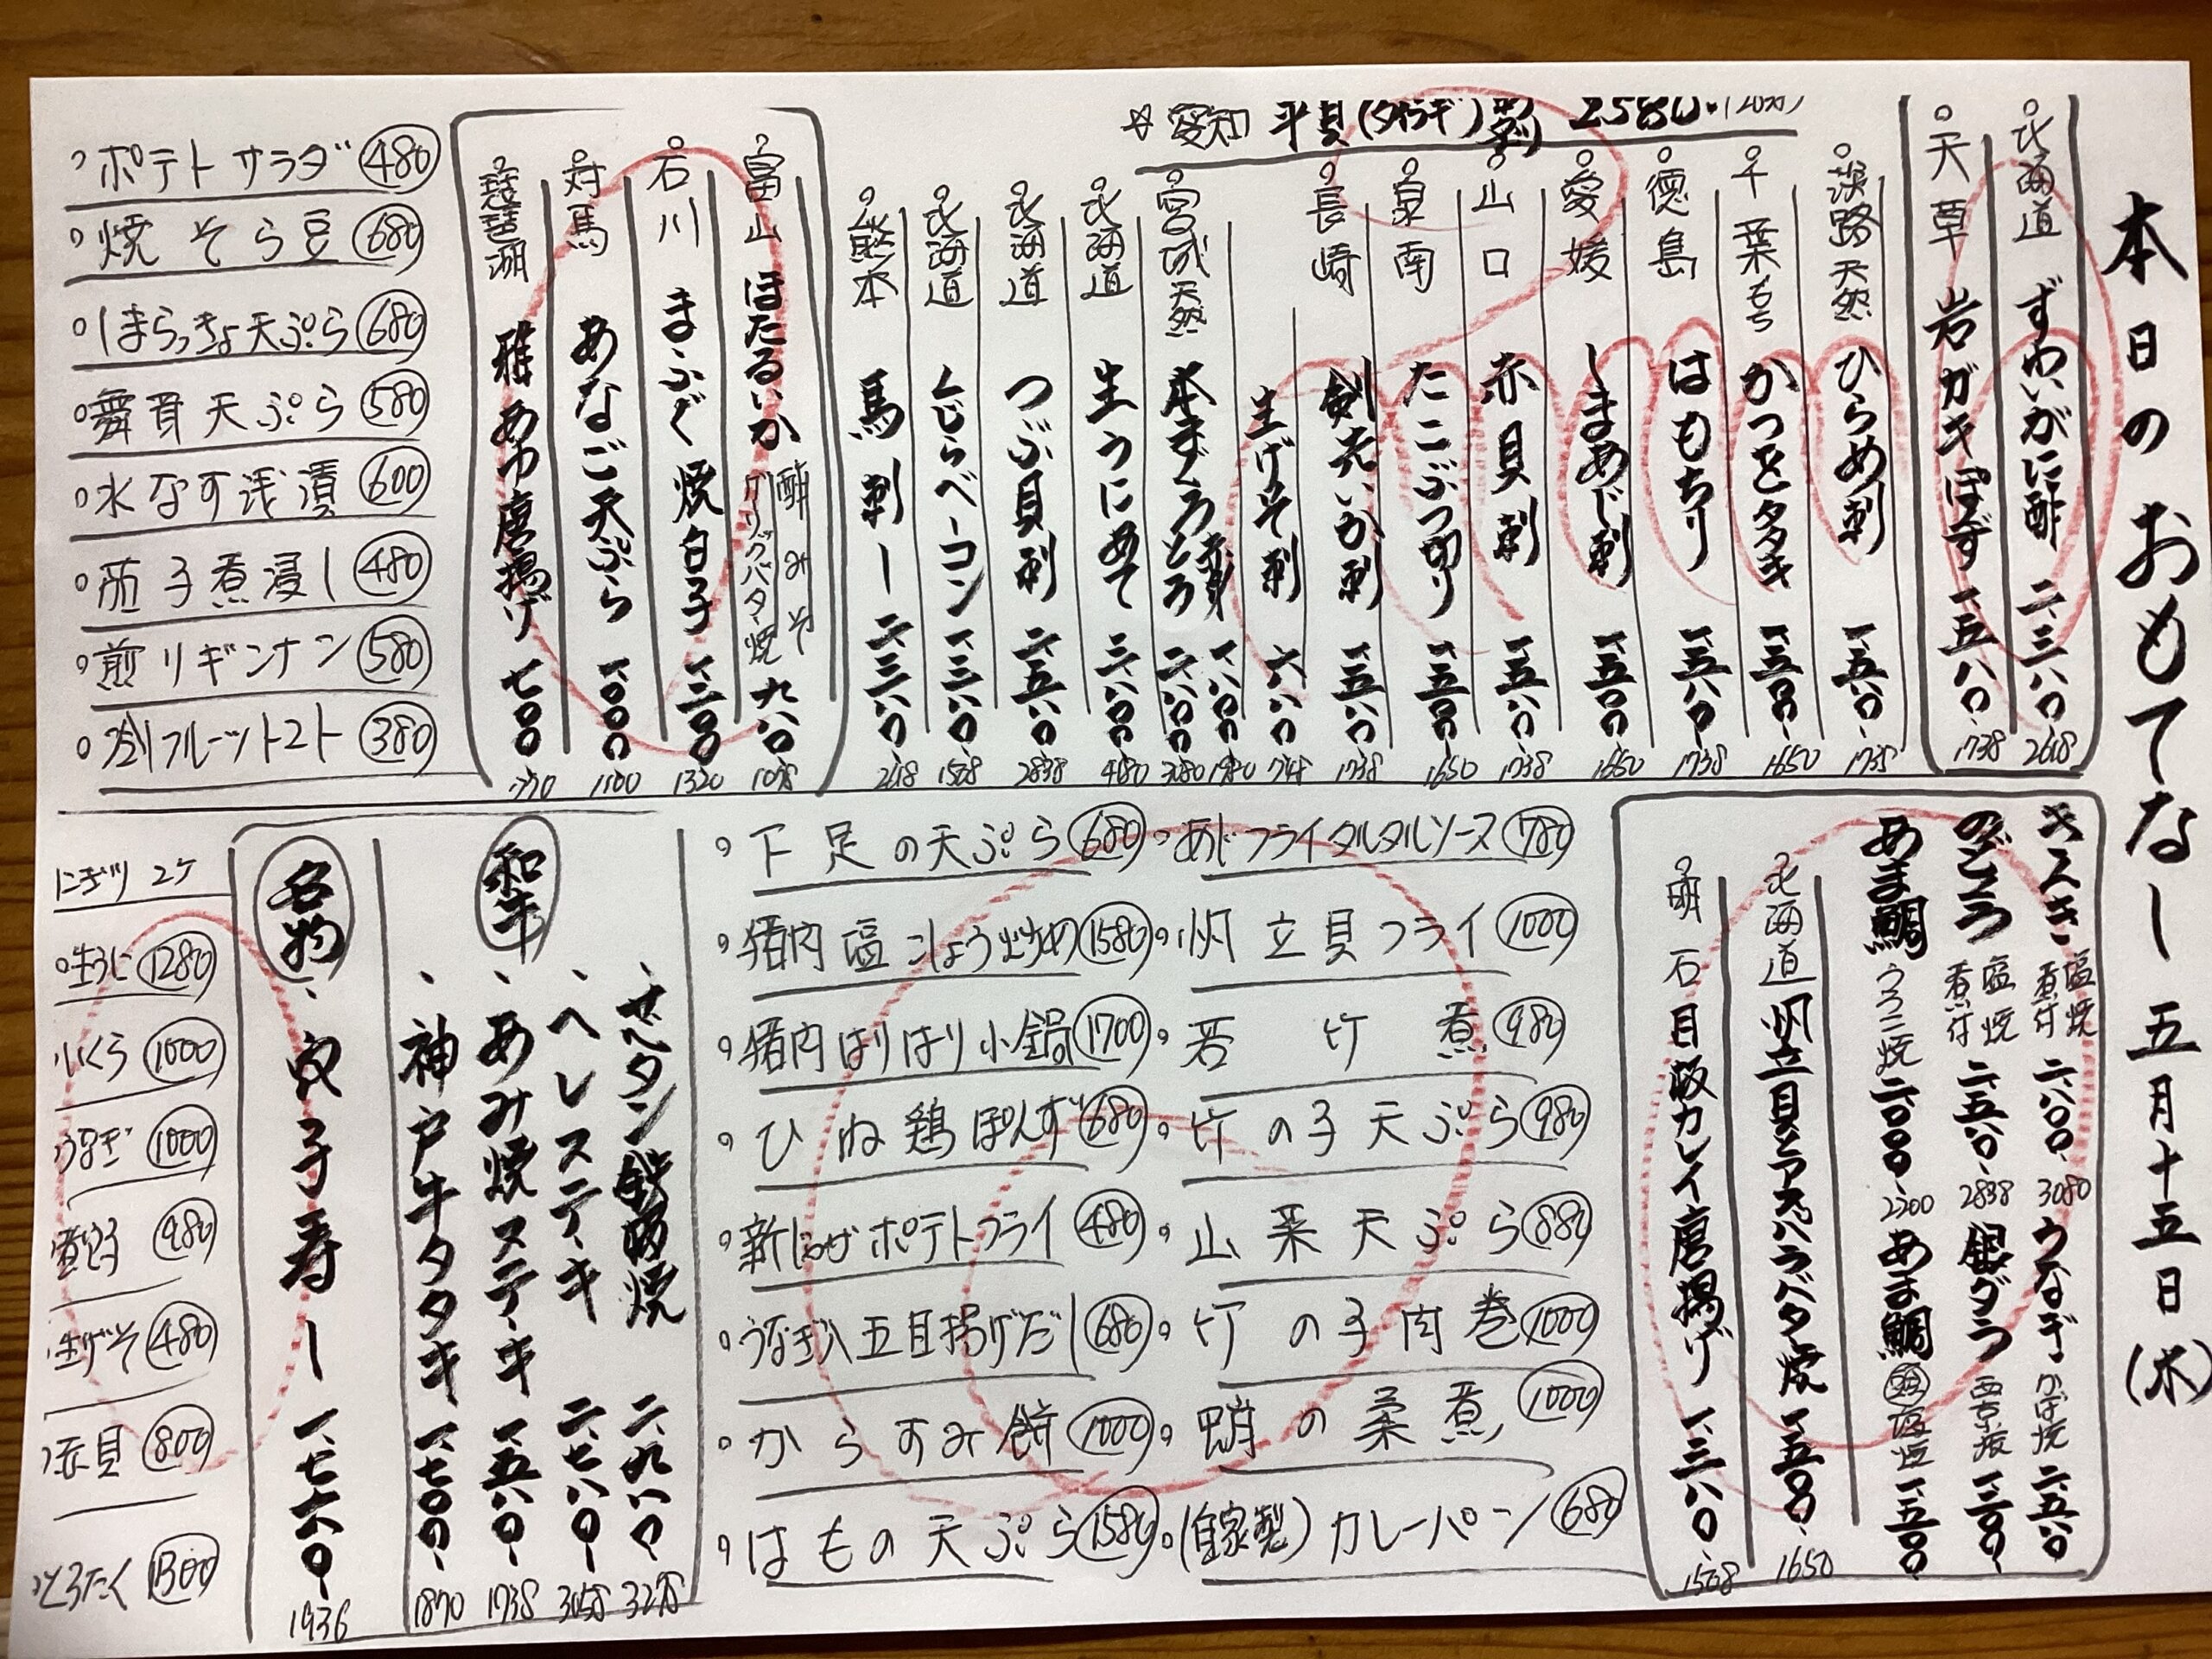 本日のおもてなし 五月十五日(水)
☆愛知 平貝(タイラギ) 2580
北海道 ずわいがに酢 二、三八〇 2618
天草 岩ガキぽんず 一、五八〇 1738
淡路 天然 ひらめ刺 一、五八〇 1738
千葉 もち かつをタタキ 一、五〇〇 1650
徳島 はもちり 一、五八〇 1738
愛媛 しまあじ刺 一、五〇〇 1650
山口 赤貝刺 一、五八〇 1738
泉南 たこぶつ切り 一、五〇〇 1650
長崎 剣先いか刺 一、五八〇 1738
生げそ刺 六八〇 748
宮城 天然 本まぐろ 赤身 一、八〇〇 1980
とろ 二、八〇〇 3080
北海道 生うにあて
北海道 つぶ貝刺 二、五八〇 2838
北海道 くじらベーコン 一、三八〇 1518
熊本 馬刺し 二、三八〇 2618
富山 ほたるいか 酢みそ ガーリックバター焼 九八〇 1078
石川 まふぐ焼白子 一、二〇〇 1320
対馬 あなご天ぷら 一、〇〇〇 1100
琵琶湖 稚あゆ唐揚げ 七〇〇 770
ポテトサラダ 480
焼そら豆 680
しまらっきょ天ぷら 680
舞茸天ぷら 580
水なす浅漬 600
茄子煮浸し 480
煎りギンナン 580
冷しフルーツトマト 380
きんき 塩焼 煮付 二、八〇〇 3080
うなぎ かば焼 二、五八〇
のどぐろ 塩焼 煮付 二、五八〇 2838
銀ダラ 西京焼 一、二〇〇
あま鯛 うろこ焼 二、〇〇〇 2200
あま鯛 塩焼 一、五〇〇
北海道 帆立貝とアスパラバター炒 一、五〇〇 1650
明石 目板カレイ唐揚げ 一、三八〇 1518
あじフライタルタルソース 780
帆立貝フライ 1000
若竹煮 980
竹の子天ぷら 980
山菜天ぷら 880
竹の子肉巻 1000
蛸の柔煮 1000
(自家製)カレーパン 680
下足の天ぷら 680
猪肉塩こしょう炒め 1580
猪肉はりはり小鍋 1700
ひね鶏ぽんず 680
新じゃがポテトフライ 480
うなぎ入五目揚げだし 680
からすみ餅 1000
はもの天ぷら 1580
和牛
ゼンタン 二、九八〇 3278
ヘレステーキ 二、七八〇 3058
あみ焼ステーキ 一、五八〇 1738
神戸牛タタキ 一、七〇〇 1870
名物
穴子寿し 一、七六〇 1936
にぎり 2ケ
生うに 1280
いくら 1000
うなぎ 1000
煮穴子 980
生げそ 480
赤貝 800
とろたく 1300